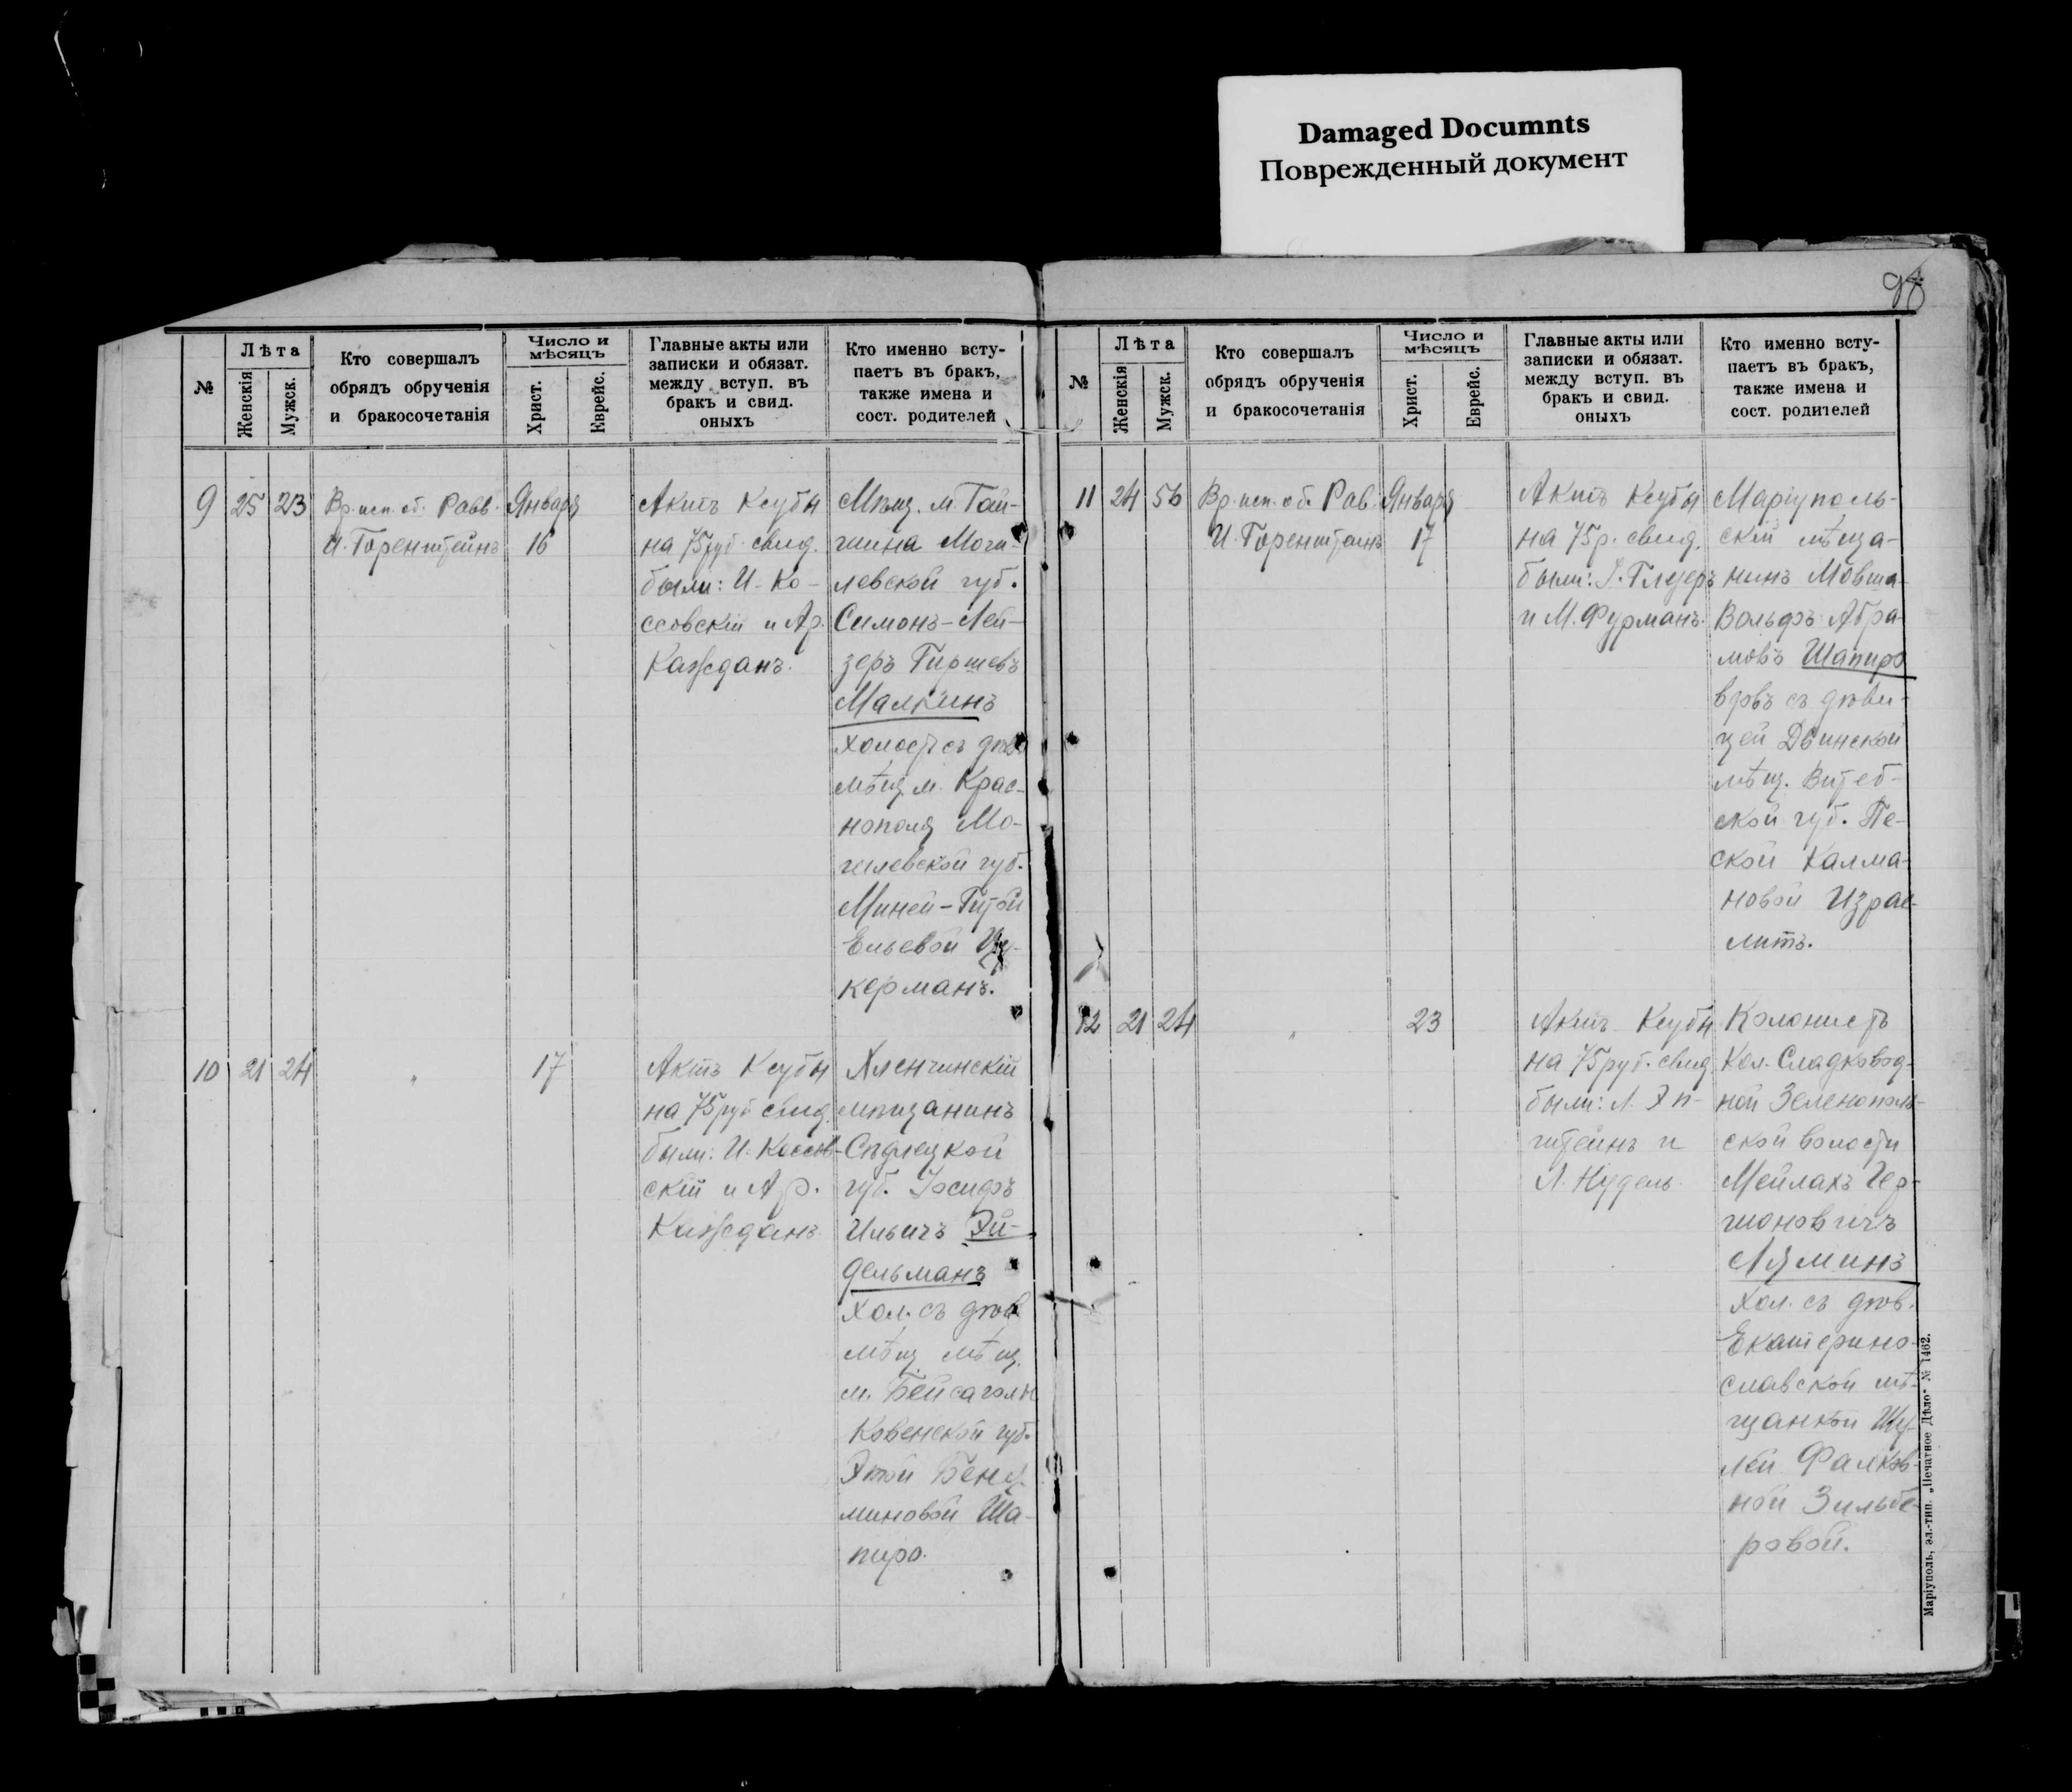 Damaged Documnts
Поврежденный документ
98
№
Лѣта
Женскія
Мужск.
Кто совершалъ
обрядъ обрученія
и бракосочетанія
Число и
мѣсяцъ
Христ.
Еврейс.
Главные акты или
записки и обязат.
между вступ. въ
бракъ и свид.
оныхъ
Кто именно всту-
паетъ въ бракъ,
также имена и
сост. родителей
9
25
23
Вр. исп. об. Равв.
И. Горенштейнъ
Января
16
Актъ Ксубы
на 75 руб. свид.
были: И. Ко-
совскій и Ар.
Каждань.
Мѣщ. м. Гай-
шина Моги-
левской губ.
Симонъ-Лей-
зеръ Гиршевъ
Малкинъ
холостъ съ дѣв.
мѣщ. м. Крас-
нополя Мо-
гилевской губ.
Миней-Гитой
Ельевой Цу-
керманъ.
10
21
24
"
17
Актъ Ксубы
на 75 руб. свид.
были: И. Коссов-
скій и Ар.
Кажданъ
Хленчинскій
мѣщанинъ
Сѣдлецкой
губ. Іосифъ
Ильичъ Эй-
дельманъ
хол. съ дѣв.
мѣщ. мѣщ.
м. Бейсаголы
Ковенской губ.
Этой Беня-
миновой Ша-
пиро.
№
Лѣта
Женскія
Мужск.
Кто совершалъ
обрядъ обрученія
и бракосочетанія
Число и
мѣсяцъ
Христ.
Еврейс.
Главные акты или
записки и обязат.
между вступ. въ
бракъ и свид.
оныхъ
Кто именно всту-
паетъ въ бракъ,
также имена и
сост. родителей
11
24
56
Вр. исп. об. Рав.
И. Горенштейнъ
Января
17
Актъ Ксубы
на 75 р. свид.
были: І. Глузеръ
и М. Фурманъ.
Маріуполь-
скій мѣща-
нинъ Мовша-
Вольфъ Абра-
мовъ Шапиро
вдовъ съ дѣви-
цей Двинской
мѣщ. Витеб-
ской губ. Пе-
ской Калма-
новой Израе-
литъ.
12
21
24
"
23
Актъ Ксубы
на 75 руб. свид.
были: Л. Эп-
штейнъ и
Л. Нудель
Колонистъ
Кол. Сладковод-
ной Зеленополь-
ской волости
Мейлахъ Гер-
шоновичъ
Ляминъ
Хол. съ дѣв.
Екатерино-
славской мѣ-
щанкой Шу-
лей Фалков-
ной Зильбе-
ровой.
Маріуполь, эл.-тип. „Печатное Дѣло" № 1462.